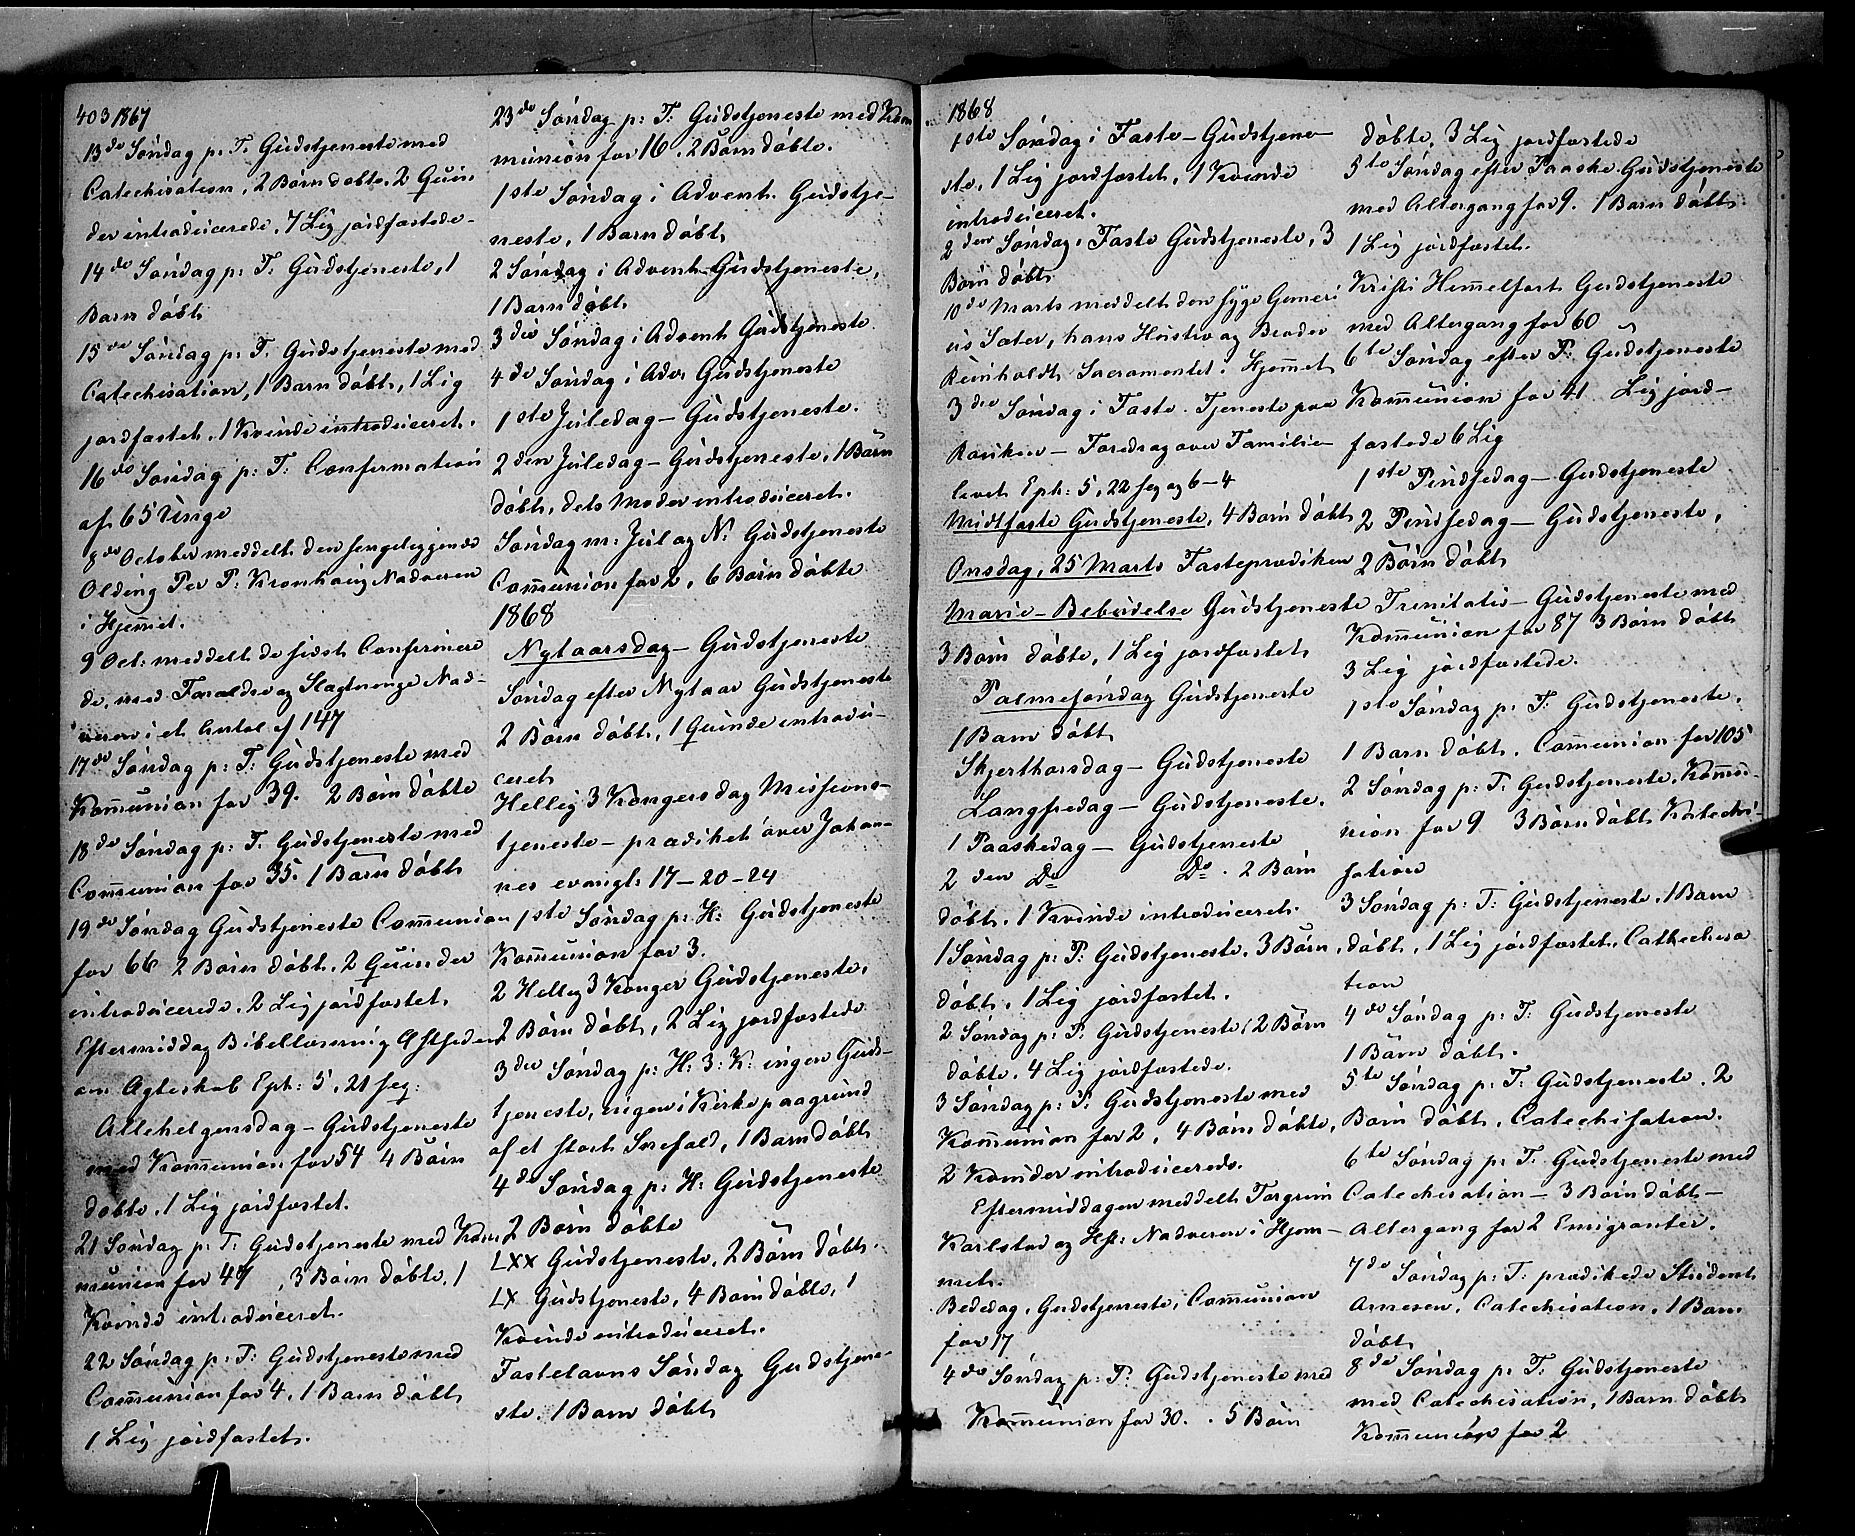 403 1867
13de Søndag p: T. Gudstjeneste med
Catechisation, 2 Børn døbte, 2 Quin
der introducerede, 7 Lig jordfæstede.
14de Søndag p: T: Gudstjeneste, 1
Barn døbt
15de Søndag p: T: Gudstjeneste med
Catechisation, 1 Barn døbt, 1 Lig
jordfæstet, 1 Kvinde introduceret.
16de Søndag p: T: Confirmation
af 65 Unge
8de October meddelt den sengeliggende
Olding Per P: Kronhaug Nadveren
i Hjemmet.
9 Oct: meddelt de sidst Confirmere
de, med Forældre og Slagtninge Nad-
veren i et Antal af 147
17de Søndag p: T: Gudstjeneste med
Kommunion for 39. 2 Børn døbte
18de Søndag p: T. Gudstjeneste med
Communion for 35. 1 Barn døbt
19de Søndag Gudstjeneste Communion
for 66 2 Børn døbt, 2 Quinder
introducerede, 2 Lig jordfæstet.
Eftermiddag Bibellæsning
om Ægteskab Eph: 5, 21 seq:
Allehelgensdag - Gudstjeneste
med Kommunion for 54 4 Børn
døbte, 1 Lig jordfæstet.
21 Søndag p: T: Gudstjeneste med Kom
munion for 47, 3 Børn døbte, 1
Kvinde introduceret.
22 Søndag p: T: Gudstjeneste med
Communion for 4, 1 Barn døbt
1 Lig jordfæstet.
23de Søndag p: T: Gudstjeneste med Kom
munion for 16. 2 Børn døbte.
1ste Søndag i Advent. Gudstje-
neste, 1 Barn døbt
2 Søndag i Advent Gudstjeneste,
1 Barn døbt
3die Søndag i Advent Gudstjeneste
4de Søndag i Adv: Gudstjeneste
1ste Juledag - Gudstjeneste.
2den Juledag - Gudstjeneste, 1 Barn
døbt, dets Moder introduceret.
Søndag m: Jul og N: Gudstjeneste
Communion for 2, 6 Børn døbte
1868
Nytaarsdag - Gudstjeneste
Søndag efter Nytaar Gudstjeneste
2 Børn døbt, 1 Quinde introdu-
ceret
Hellig 3 Kongersdag Missions-
tjeneste - prædiket over Johan-
nes evangl: 17-20-24
1ste Søndag p: H: Gudstjeneste
Kommunion for 3.
2 Hellig 3 Konger Gudstjeneste,
2 Børn døbt, 2 Lig jordfæstede
3die Søndag p: H: 3: K: ingen Guds-
tjeneste, ingen i Kirke paa grund
af et stort Snefald, 1 Barn døbt
4de Søndag p: H: Gudstjeneste
2 Børn døbte
LXX Gudstjeneste, 2 Børn døbt.
LX Gudstjeneste, 4 Børn døbte, 1
Kvinde introduceret.
Fastelavns Søndag Gudstjene-
ste. 1 Barn døbt
1868
1ste Søndag i Faste - Gudstjene-
ste, 1 Lig jordfæstet, 1 Kvinde
introduceret.
2den Søndag i Faste Gudstjeneste, 3
Børn døbt
10de Marts meddelt den syge
Sæter, hans Hustro og Broder
Reinholdt Sacramentet i Hjemmet
3die Søndag i Faste. Tjeneste paa
- Foredrag over Familie
livet Eph: 5, 22 seq og 6-4
Midtfaste Gudstjeneste, 4 Børn døbt
Onsdag, 25 Marts Fasteprædiken
Marie-Bebudelse Gudstjeneste
3 Børn døbte, 1 Lig jordfæstet
Palmesøndag Gudstjeneste
1 Barn døbt
Skjerthorsdag - Gudstjeneste
Langfredag - Gudstjeneste.
1 Paaskedag - Gudstjeneste
2den Do Do. 2 Børn
døbt. 1 Kvinde introduceret.
1 Søndag p: P: Gudstjeneste. 3 Børn,
døbt. 1 Lig jordfæstet.
2 Søndag p: P: Gudstjeneste, 2 Børn
døbte. 4 Lig jordfæstede.
3 Søndag p: P: Gudstjeneste med
Kommunion for 2, 4 Børn døbte,
2 Kvinder introducerede.
Eftermiddagen meddelt Torgrim
Karlstad og Hst: Nadveren i Hjem-
met.
Bededag, Gudstjeneste, Communion
for 17
4de Søndag p: P: Gudstjeneste med
Kommunion for 30. . 5 Børn
døbte, 3 Lig jordfæstede
5te Søndag efter Paaske Gudstjeneste
med Altergang for 9. 1 Barn døbt
1 Lig jordfæstet.
Kristi Himmelfart Gudstjeneste
med Altergang for 60
6te Søndag efter P: Gudstjeneste
Kommunion for 41 Lig jord-
fæstede 6 Lig
1ste Pindsedag - Gudstjeneste
2 Pindsedag - Gudstjeneste,
2 Børn døbt
Trinitatis - Gudstjeneste med
Kommunion for 87 3 Børn døbt
3 Lig jordfæstede.
1ste Søndag p: T: Gudstjeneste,
1 Barn døbt. Communion for 105
2 Søndag p: T: Gudstjeneste. Kommu-
nion for 9 3 Børn døbt Katechi-
sation
3 Søndag p: T: Gudstjeneste. 1 Barn
døbt, 1 Lig jordfæstet. Cathechisa
tion
4de Søndag p: T: Gudstjeneste
1 Barn døbt.
5te Søndag p: T: Gudstjeneste. 2
Børn døbt, Catechisation.
6te Søndag p: T: Gudstjeneste med
Catechisation - 3 Børn døbt -
Altergang for 2 Emigranter.
7de Søndag p: T: prædikede Student
Arnesen, Catechisation, 1 Barn
døbt
8de Søndag p: T: Gudstjeneste
med Catechisation, 1 Barn døbt
Kommunion for 2